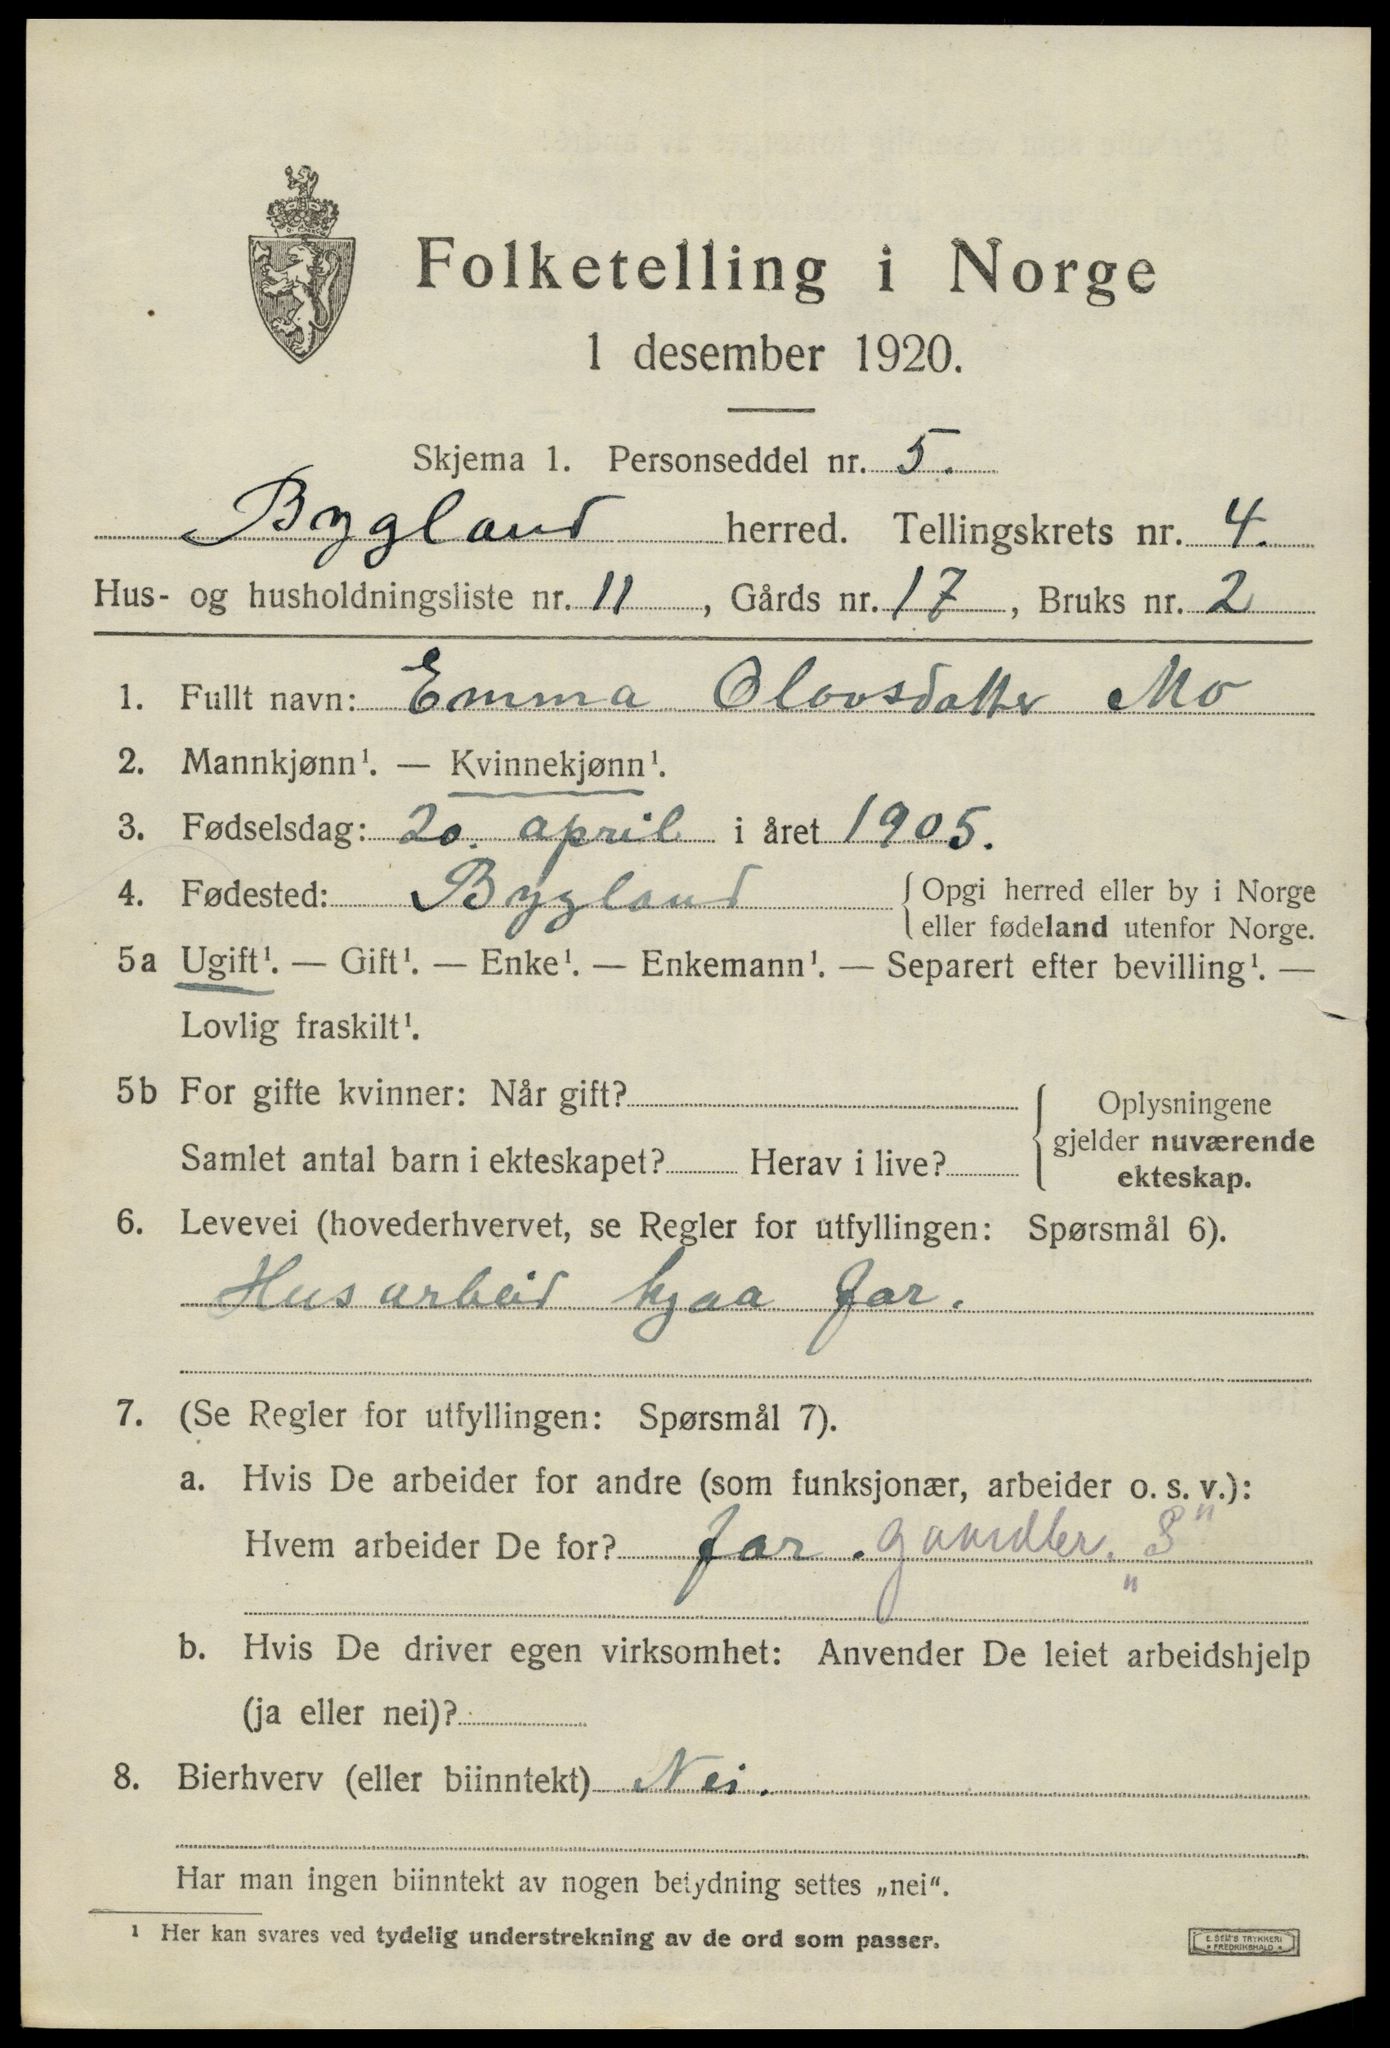 Folketelling i Norge
1 desember 1920.
Skjema 1. Personseddel nr. 5.
Bygland herred. Tellingskrets nr. 4.
Hus- og husholdningsliste nr. 11, Gårds nr. 17, Bruks nr. 2
1. Fullt navn: Emma Olovsdatter Mo
2. Mannkjønn¹. — Kvinnekjønn¹.
3. Fødselsdag: 20. april i året 1905.
4. Fødested: Bygland { Opgi herred eller by i Norge
eller fødeland utenfor Norge.
5a Ugift¹. — Gift¹. — Enke¹. — Enkemann¹. — Separert efter bevilling¹. —
Lovlig fraskilt¹.
5b For gifte kvinner: Når gift? { Oplysningene
gjelder nuværende
Samlet antal barn i ekteskapet? Herav i live?
ekteskap.
6. Levevei (hovederhvervet, se Regler for utfyllingen: Spørsmål 6).
Husarbeid hjaa far.
7. (Se Regler for utfyllingen: Spørsmål 7).
a. Hvis De arbeider for andre (som funksjonær, arbeider o. s. v.):
Hvem arbeider De for? far.
b. Hvis De driver egen virksomhet: Anvender De leiet arbeidshjelp
(ja eller nei)?
8. Bierhverv (eller biinntekt) Nei.
Har man ingen biinntekt av nogen betydning settes „nei“.
¹ Her kan svares ved tydelig understrekning av de ord som passer.
E. SEM'S TRYKKERI
FREDRIKSHALD